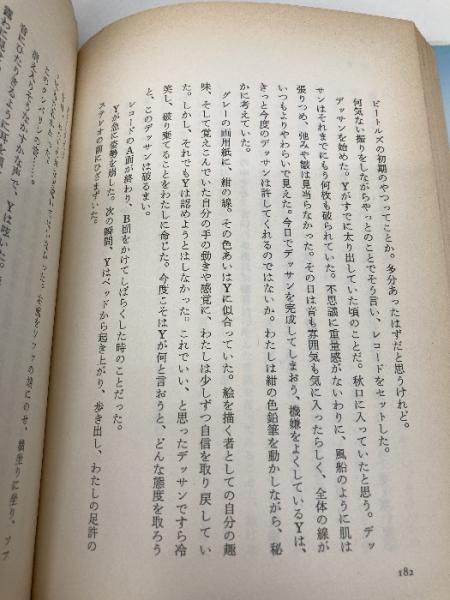 ビートルズの初期のやつってことか。多分あったはずだと思うけれど。
何気ない振りをしながらやっとのことでそう言い、レコードをセットした。
デッサンを始めた。Yがすでに太り出していた頃のことだ。秋口に入っていたと思う。デッ
サンはそれまでにもう何枚も破られていた。不思議に重量感がないわりに、風船のように肌は
張りつめ、弛みや皺は見当らなかった。その日は音も雰囲気も気に入ったらしく、全体の線が
いつもよりやわらいで見えた。今日でデッサンを完成してしまおう、機嫌をよくしているYは、
きっと今度のデッサンは許してくれるのではないか。わたしは紺の色鉛筆を動かしながら、秘
かに考えていた。
グレーの画用紙に、紺の線。その色あいはYに似合っていた。絵を描く者としての自分の趣
味、そして覚えこんでいた自分の手の動きや感覚に、わたしは少しずつ自信を取り戻してい
た。しかし、それでもYは認めようとはしなかった。これでいい、と思ったデッサンですら冷
笑し、破り棄てることをわたしに命じた。今度こそはYが何と言おうと、どんな態度を取ろう
と、このデッサンは破るまい。
レコードのA面が終わり、B面をかけてしばらくした時のことだった。
Yが急に姿勢を崩した。次の瞬間、Yはベッドから起き上がり、歩き出し、わたしの足許の
ステレオの前にひざまずいた。
消え入りそうなかすれ声で、Yは呟いた。
音にひたりきるように耳を
182